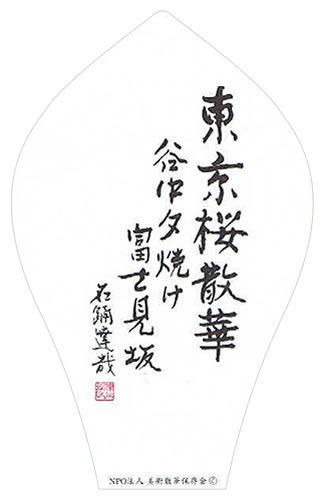 東京桜散華
谷中夕焼け
富士見坂
石踊達哉
NPO法人 美術散華保存会 Ⓒ